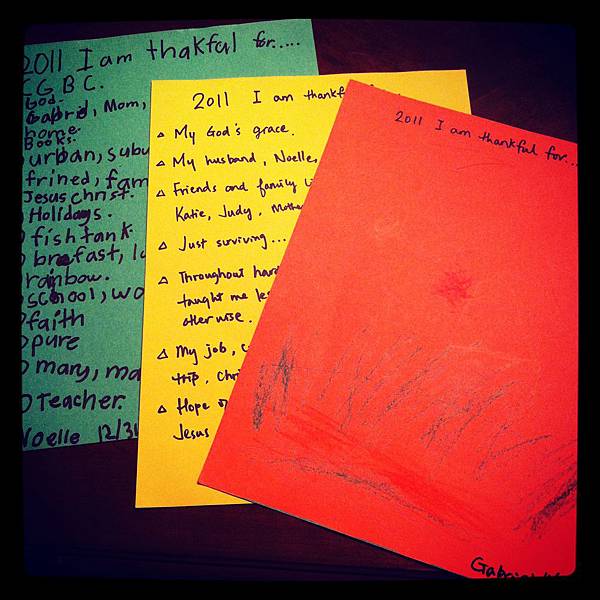 2011 I am thakful for.....
CGBC.
God.
Gabriel, Mom,
home.
Books.
urban, subu
frined, fam
Jesus christ.
Holidays.
fish tank
brefast, lu
rainbow.
school, wo
faith
pure
mary, ma
Teacher.
Noelle 12/31
2011 I am thankf
My God's grace.
My husband, Noelle,
Friends and family li
Katie, Judy, Mothe
Just surviving...
Throughout hard
taught me les
otherwise.
My job, c
trip, Chri
Hope o
Jesus
2011 I am thankful for...
Gabriel